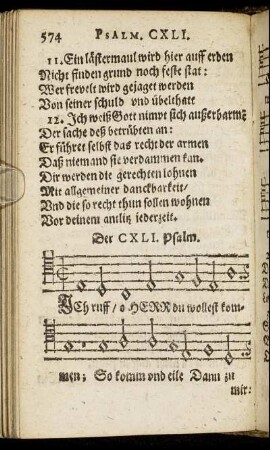 574 PSALM. CXLI.
11. Ein lästermaul wird hier auff erden
Nicht finden grund noch feste stat:
Wer frevelt wird gejaget werden
Von seiner schuld und übelthatt
12. Ich weiß Gott nimpt sich außerbarmz
Der sache deß betrübten an:
Er führet selbst das recht der armen
Daß niemand sie verdammen kan.
Dir werden die gerechten lohnen
Mit allgemeiner danckbarkeit/
Vnd die so recht thun sollen wohnen
Vor deinem antlitz jederzeit.
Der CXLI. Psalm.
ICh ruff / o HERR du wollest kom-
men; So komm vnd eile Dann zu
mir: